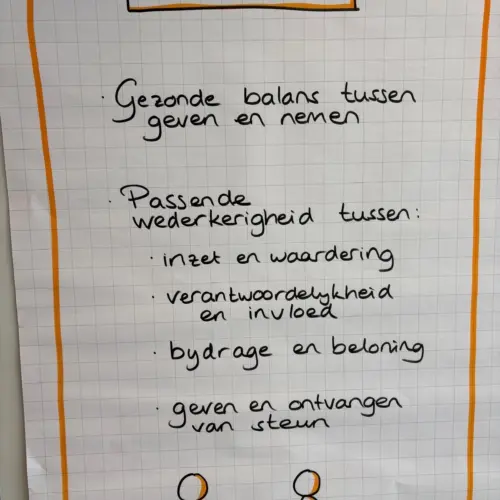 · Gezonde balans tussen
geven en nemen
· Passende
wederkerigheid tussen:
· inzet en waardering
· verantwoordelykheid
en invloed
· bydrage en beloning
· geven en ontvangen
van steun